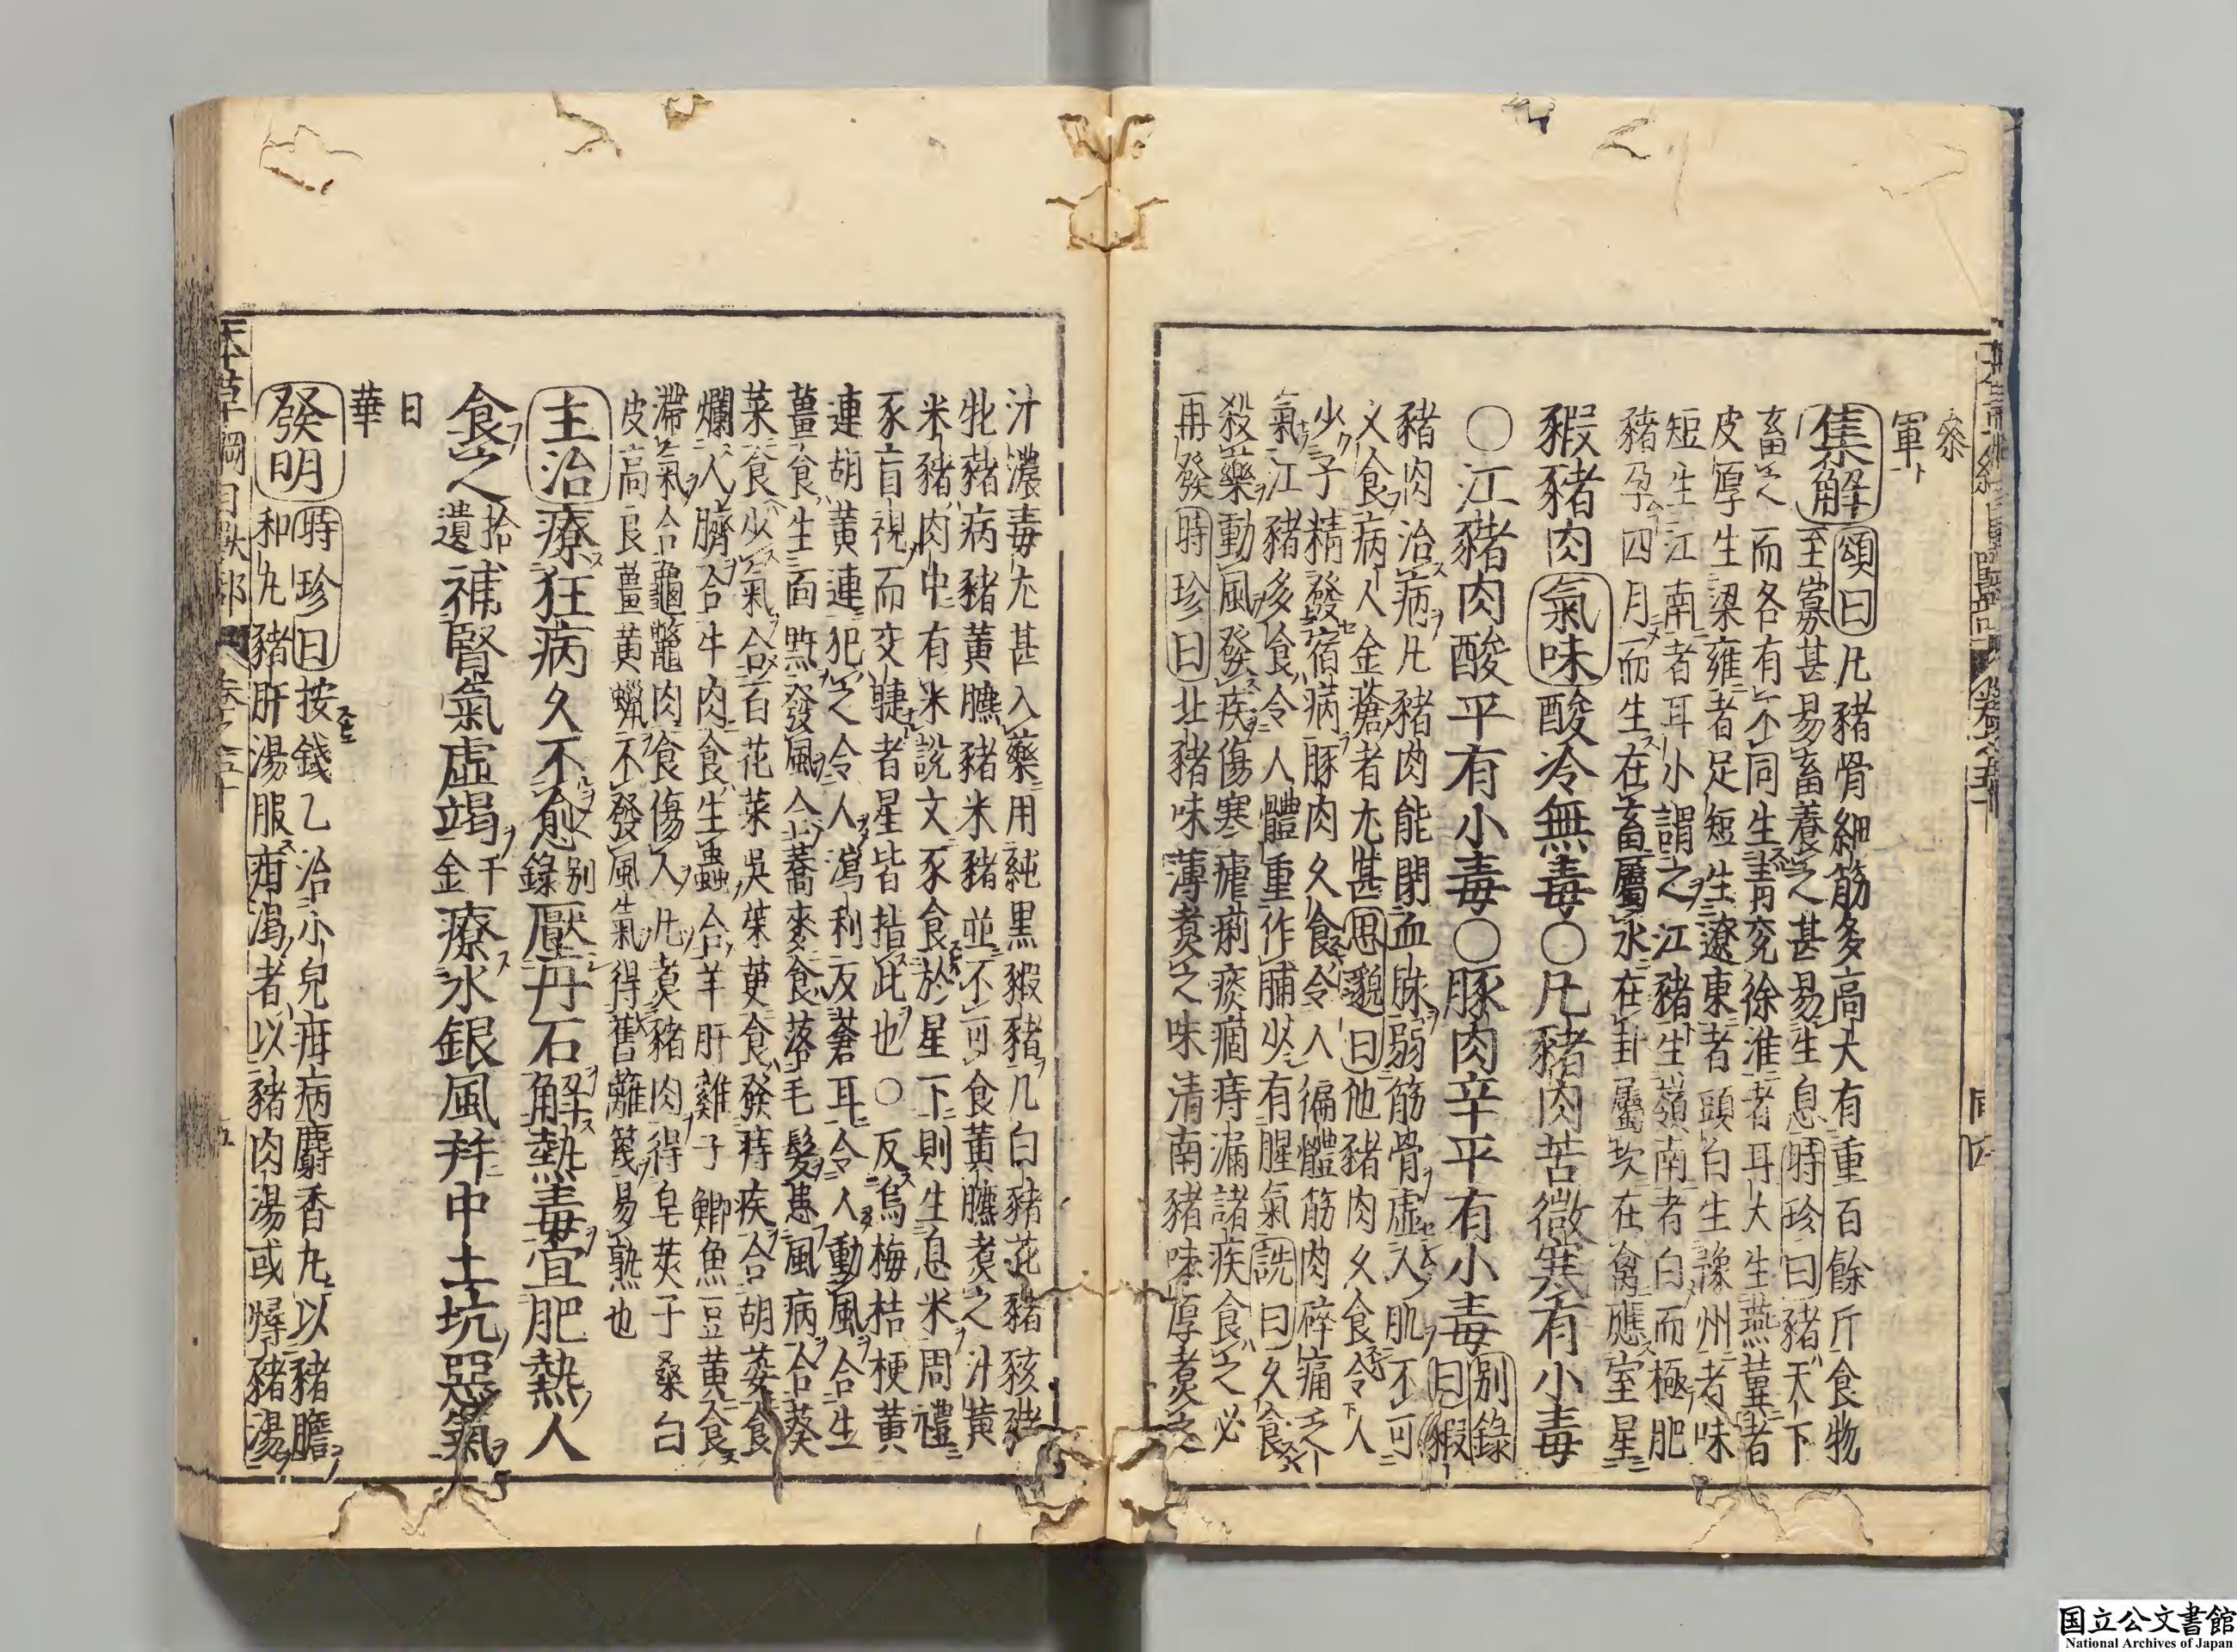 參
軍
集解頌曰凡豬骨細筋多高大有重百餘斤食物
至寡甚易畜養之甚易生息時珍曰豬天下
畜之而各有不同生青兗徐淮者耳大生燕冀者
皮厚生梁雍者足短生遼東者頭白生豫州者味
短生江南者耳小謂之江豬生嶺南者白而極肥
豬孕四月而生在畜屬水在卦屬坎在禽應室星
豭豬肉氣味酸冷無毒〇凡豬肉苦微寒有小毒
〇江豬肉酸平有小毒〇豚肉辛平有小毒別錄
曰豭
豬肉治病凡豬肉能閉血脉弱筋骨虛人肌不可
久食病人金瘡者尤甚思邈曰他豬肉久食令人
少子精發宿病豚肉久食令人徧體筋肉碎痛乏
氣江豬多食令人體重作脯少有腥氣詵曰久食
殺藥動風發疾傷寒瘧痢痰痼痔漏諸疾食之必
再發時珍曰北豬味薄煑之味清南豬味厚煑之
汁濃毒尤甚入藥用純黑豭豬凡白豬花豬豥豬
牝豬病豬黃膘豬米豬並不可食黃膘煑之汁黃
米豬肉中有米說文豕食於星下則生息米周禮
豕盲視而交睫者星皆指此也〇反烏梅桔梗黃
連胡黃連犯之令人瀉利反蒼耳令人動風合生
薑食生面䵟發風合蕎麥食落毛髮患風病合葵
菜食少氣合百花菜吳茱萸食發痔疾合胡荽食
爛人臍合牛肉食生蟲合羊肝雞子鯽魚豆黃食
滯氣合龜鼈肉食傷人凡煑豬肉得皂莢子桑白
皮高良薑黃蠟不發風氣得舊籬篾易熟也
主治療狂病久不愈別錄壓丹石解熱毒宜肥熱人
食之拾遺補腎氣虛竭千金療水銀風幷中土坑惡氣
日
華
發明時珍曰按錢乙治小兒疳病麝香丸以豬膽
和丸豬肝湯服疳渴者以豬肉湯或燖豬湯
本草綱目獸部 卷之五十
国立公文書館
National Archives of Japan